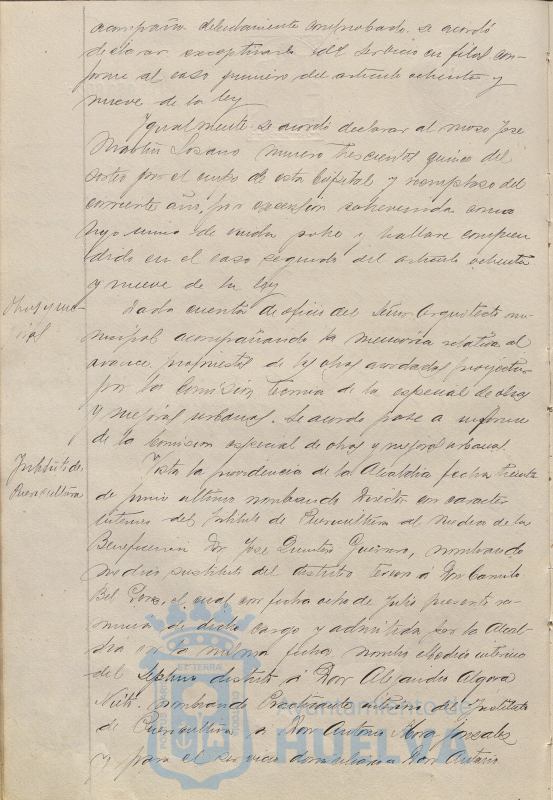 acompaña debidamente comprobado se acordó
declarar exceptuarle del servicio en filas con-
forme al caso primero del artículo ochenta y
nueve de la ley
Igualmente se acordó declarar al mozo José
Martín Lozano número trescientos quince del
sorteo por el cupo de esta Capital y reemplazo del
corriente año, por excepción sobrevenida como
hijo único de viuda pobre y hallarse compren
dido en el caso segundo del artículo ochenta
y nueve de la ley
Dada cuenta de oficio del Señor Arquitecto mu-
nicipal acompañando la memoria relativa al
avance propuesta de las obras acordadas proyectar
por la Comisión de la especial de obras
y mejoras urbanas. Se acordó pase a informe
de la Comisión especial de obras y mejoras urbanas.
Instituto de
Puericultura
Vista la providencia de la Alcaldía fecha treinta
de junio último nombrando Director con caracter
interino del Instituto de Puericultura al Médico de la
Beneficencia Don José Quintero Guerrero, nombrando
médico sustituto del distrito Tercero á Don Camilo
Bel, el cual con fecha ocho de Julio presentó re-
nuncia de dicho cargo y admitida por la Alcal-
día en la misma fecha nombró Médico interino
del Septimo distrito á Don Alejandro
nombrando Practicante interino del Instituto
de Puericultura a Don Antonio Mora Gonzalez
y para el servicio domiciliario a Don Antonio
Ayuntamiento de
HUELVA